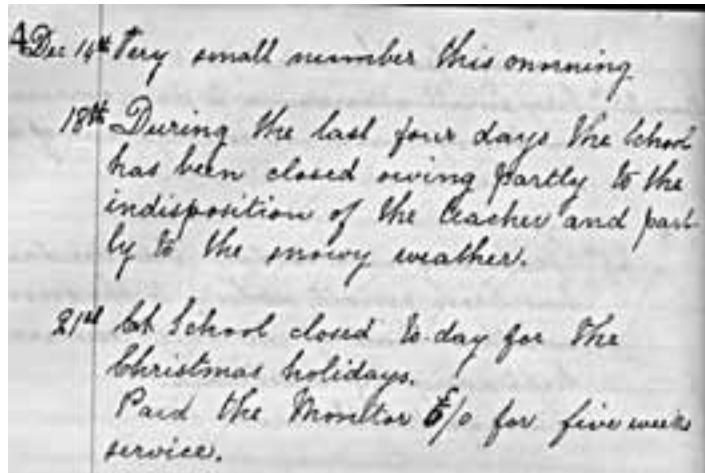 4 Dec 14th Very small number this morning
18th During the last four days the School
has been closed owing partly to the
indisposition of the teacher and part
ly to the snowy weather.
21st School closed to-day for the
Christmas holidays.
Paid the Monitor 5/0 for five weeks
service.